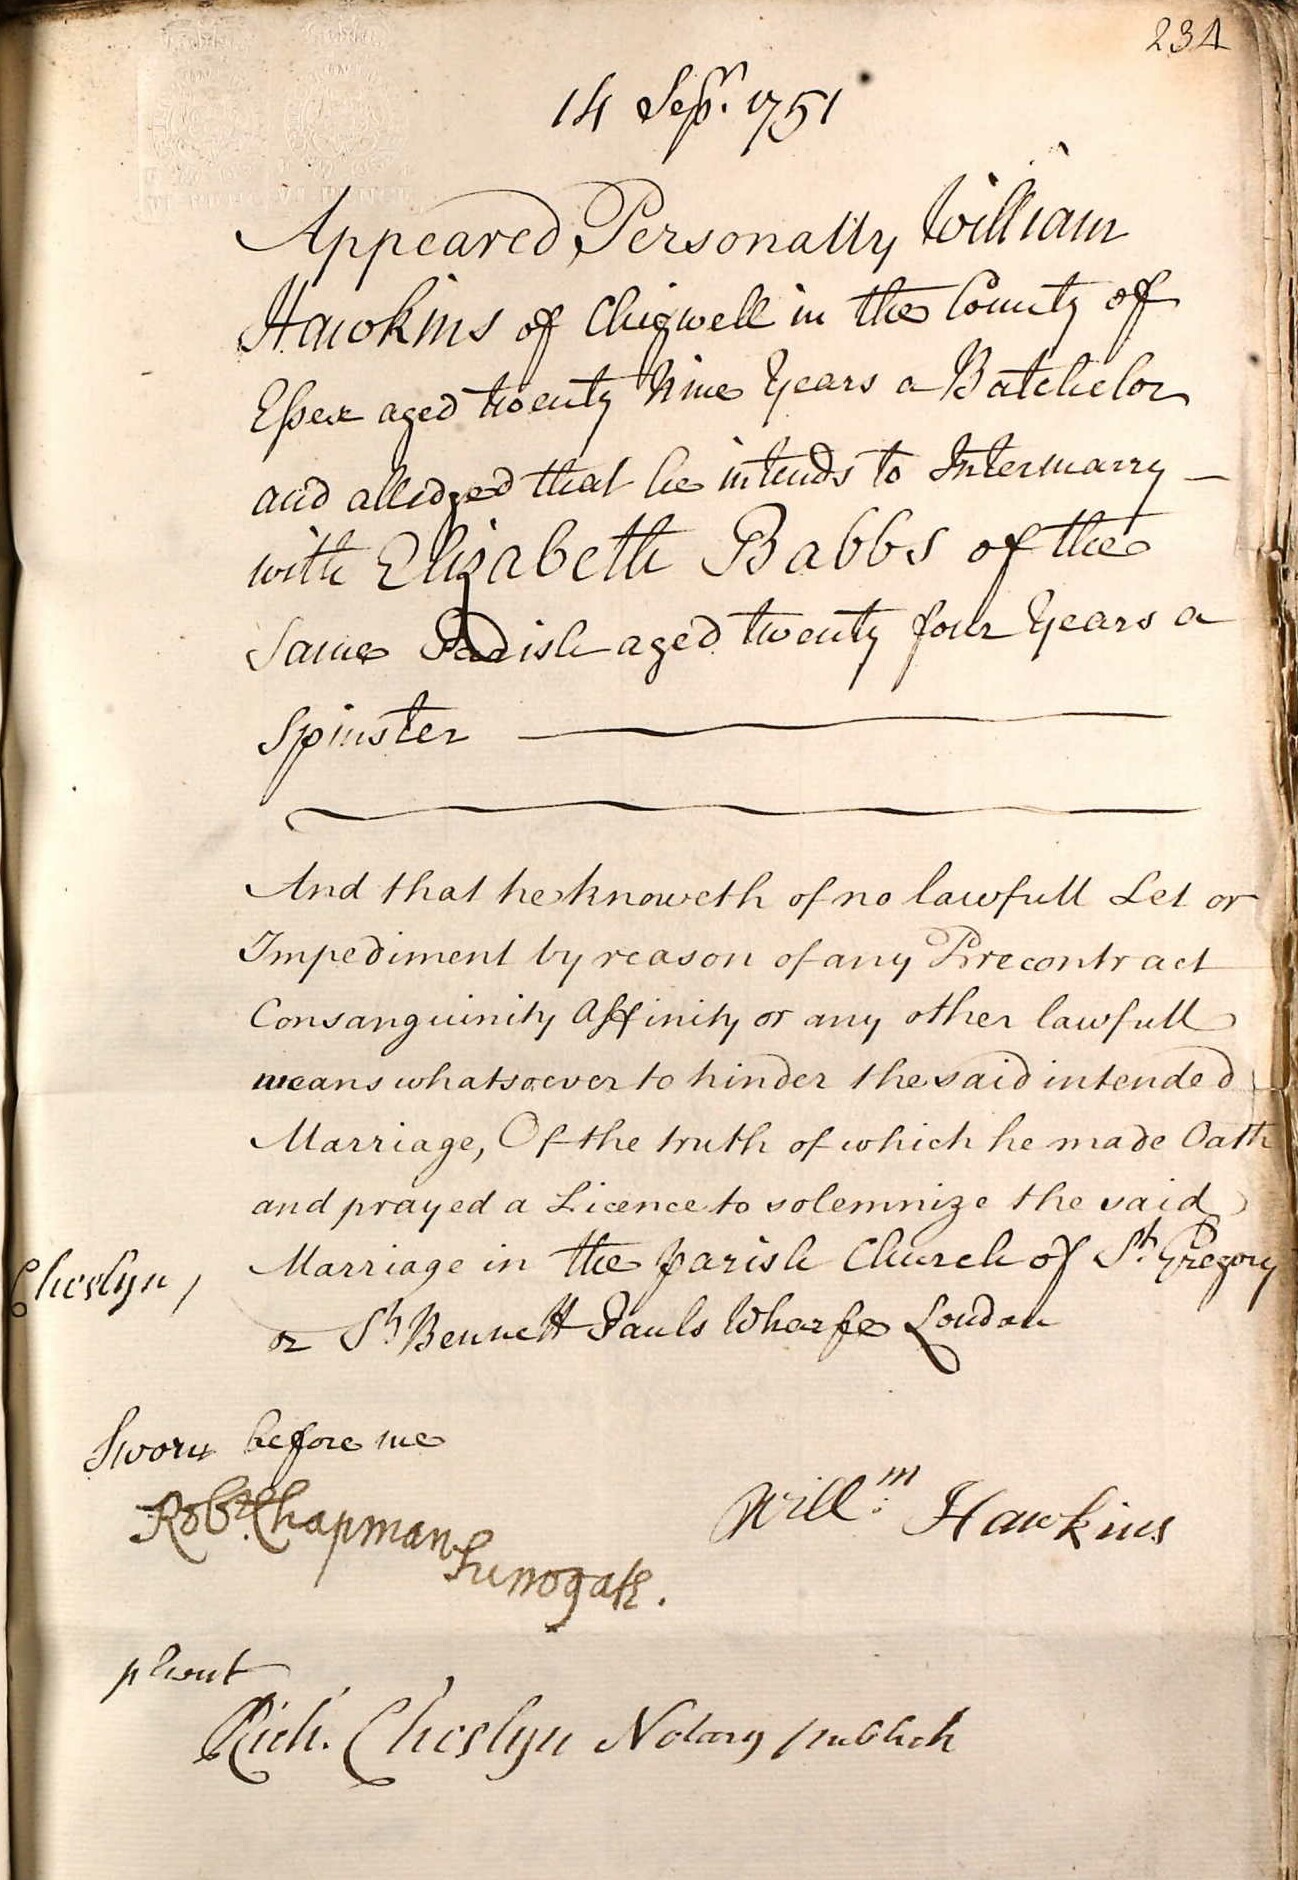 234
14 Sepr. 1751
Appeared Personally William
Hawkins of Chigwell in the County of
Essex aged twenty Nine Years a Batchelor
and alledged that he intends to Intermarry
with Elizabeth Babbs of the
Same Parish aged twenty four Years a
Spinster
And that he knoweth of no lawfull Let or
Impediment by reason of any Precontract
Consanguinity Affinity or any other lawfull
means whatsoever to hinder the said intended
Marriage, Of the truth of which he made Oath
and prayed a Licence to solemnize the said
Marriage in the parish Church of St. Gregory
Cheslyn,
or St. Bennett Pauls Wharfe London
Sworn before me
Robt. Chapman
Surrogate.
Willm: Hawkins
psent
Rich. Cheslyn Notary publick